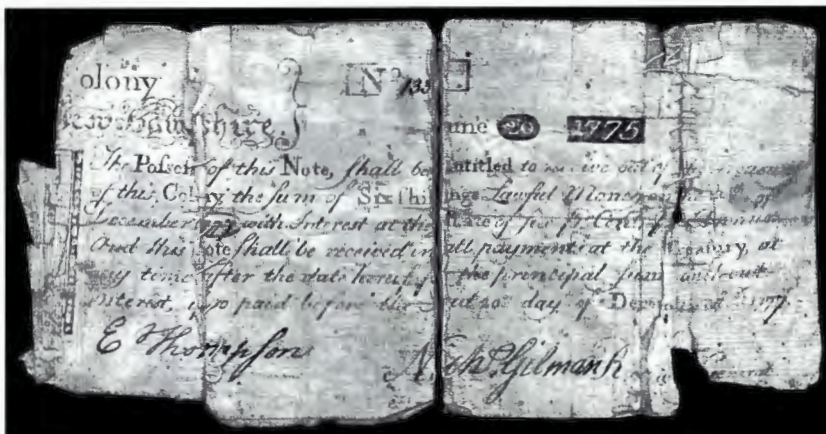 olony N⁰ 135
Hampshire. une 20 1775
The Possesr of this Note, shall be entitled to receive out of
of this Colony the sum of Six shillings Lawful Money on the of
December with Interest at the Rate of six pr Cent pr Annum
And this Note shall be received in all payments at the Treasury, at
any time after the date hereof, the principal sum without
interest, if so paid before the day of December 1777
E Thompson Nich⁰. Gilman R General